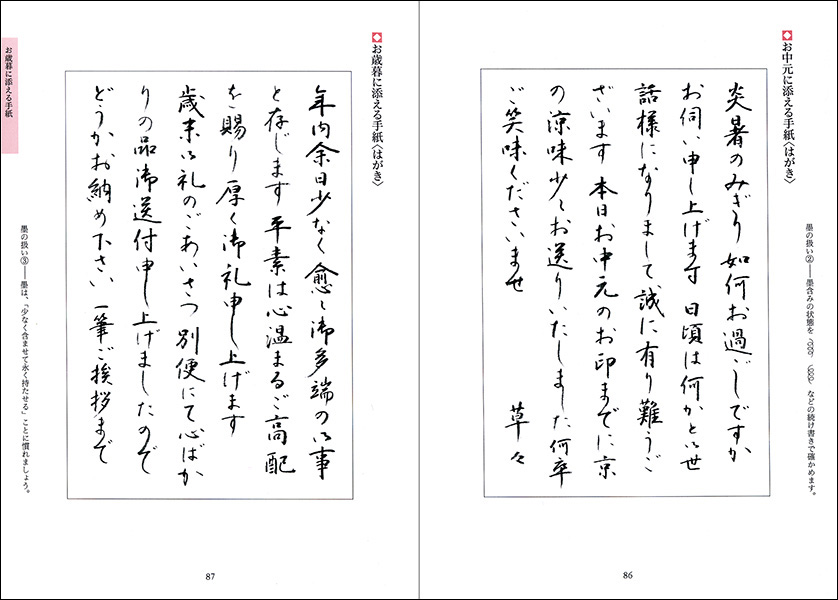 ◆お中元に添える手紙〈はがき〉
炎暑のみぎり 如何お過ごしですか
お伺い申し上げます 日頃は何かと御世
話様になりまして誠に有り難うご
ざいます 本日お中元のお印までに京
の涼味少々お送りいたしました何卒
ご笑味くださいませ 草々
墨の扱い②——墨含みの状態を などの続け書きで確かめます。
86
◆お歳暮に添える手紙〈はがき〉
年内余日少なく愈々御多端の御事
と存じます 平素は心温まるご高配
を賜り厚く御礼申し上げます
歳末御礼のごあいさつ 別便にて心ばか
りの品御送付申し上げましたので
どうかお納め下さい 一筆ご挨拶まで
墨の扱い③——墨は、「少なく含ませて永く持たせる」ことに慣れましょう。
お歳暮に添える手紙
87